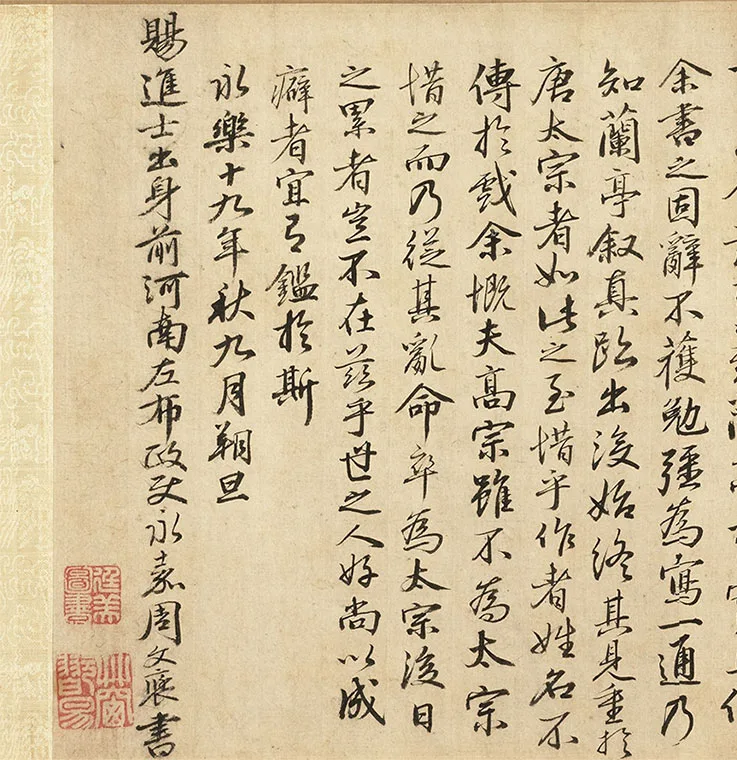 余書之固辭不獲勉彊為寫一通乃
知蘭亭叙真跡出没始終其見重於
唐太宗者如此之至惜乎作者姓名不
傳於戲余慨夫高宗雖不為太宗
惜之而乃從其亂命卒為太宗後日
之累者豈不在茲乎世之人好尚以成
癖者宜有鑑於斯
永樂十九年秋九月朔旦
賜進士出身前河南左布政使永嘉周文褒書